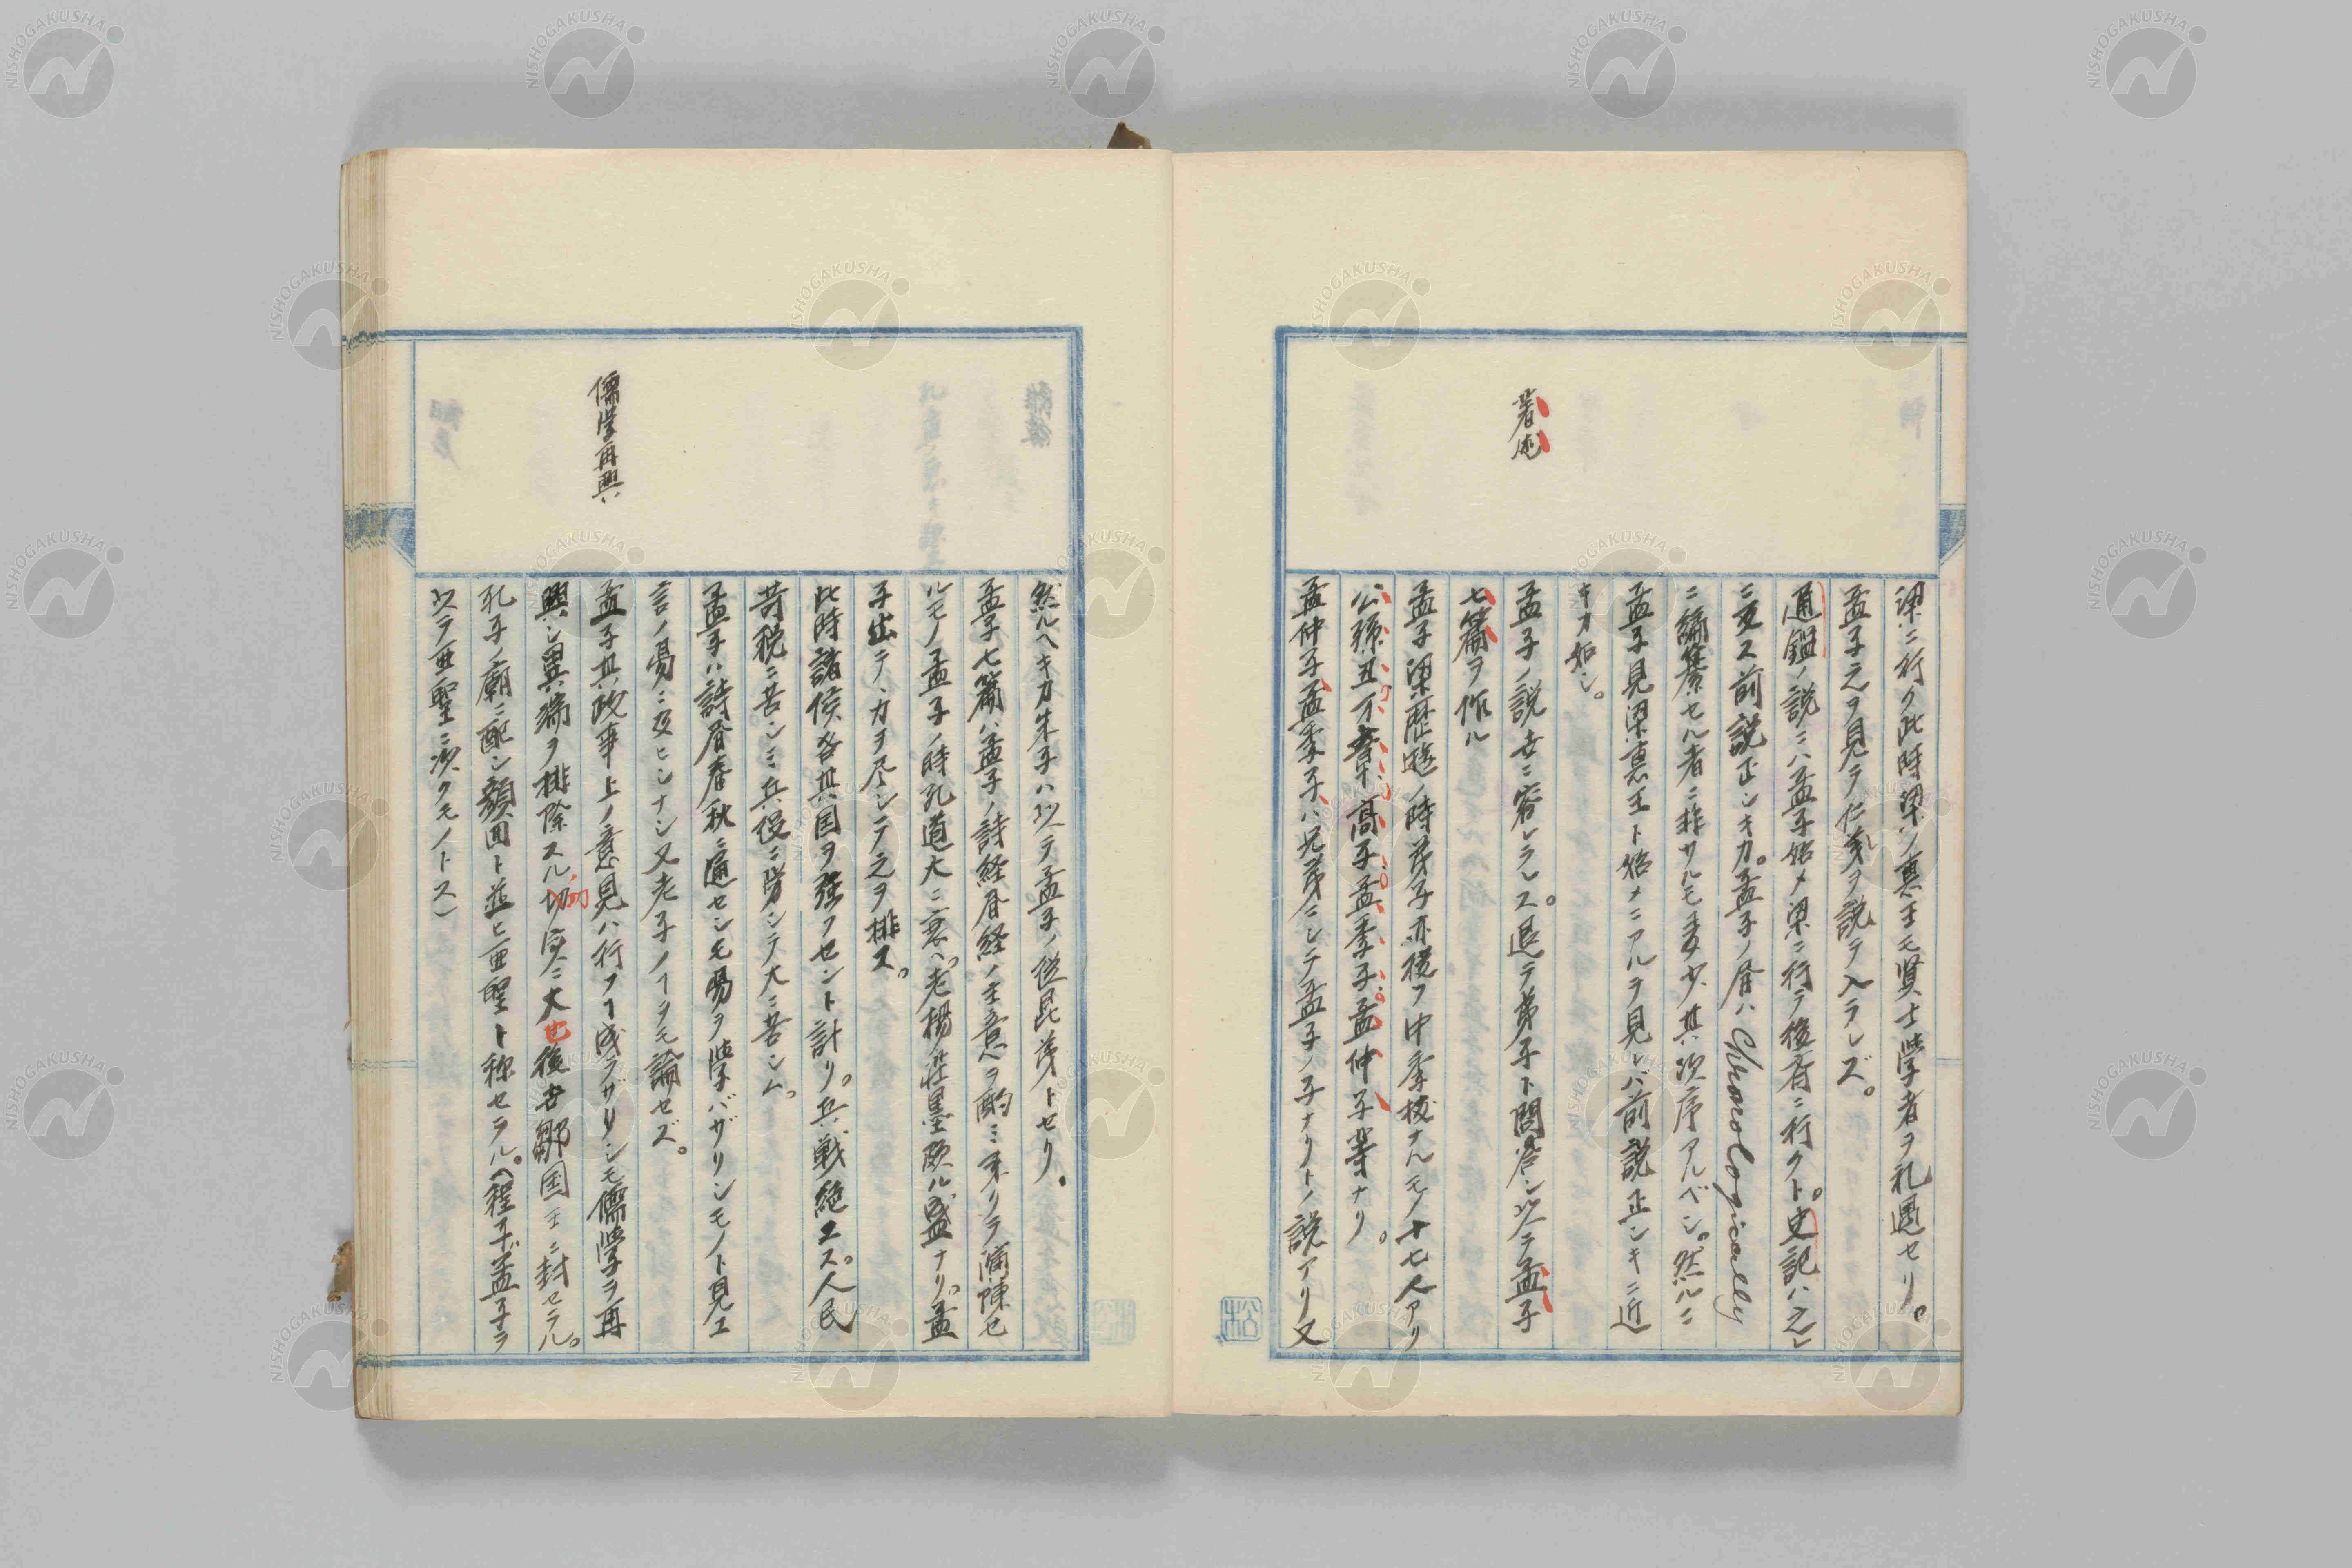 梁ニ行ク此時梁ノ惠王モ賢士學者ヲ礼遇セリ。
孟子之ヲ見テ仁義ヲ説テ入ラレズ。
通鑑ノ説ニハ孟子始メ梁ニ行テ後斉ニ行クト。史記ハ之レ
ニ反ス前説正シキカ。孟子ノ書ハ Chronologically
ニ編纂セル者ニ非サルモ多少其次序アルベシ。然ルニ
孟子見梁惠王ト始メニアルヲ見レバ前説正シキニ近
キカ如シ。
著述
孟子ノ説世ニ容レラレス。退テ弟子ト問答シ以テ孟子
七篇ヲ作ル
孟子梁歴遊ノ時弟子亦從フ中秀拔ナルモノ十七人アリ
公孫丑万章高子孟季子孟仲子等ナリ。
孟仲子孟季子ハ兄弟ニシテ孟子ノ子ナリトノ説アリ又
然ルヘキカ朱子ハ以テ孟子ノ從昆弟トセリ。
孟子七篇ハ孟子ノ詩経書経ノ主意ヲ酌ミ来リテ演陳セ
ルモノ孟子ノ時孔道大ニ衰ヘ。老楊荘墨頗ル盛ナリ。孟
子出テ、力ヲ尽シテ之ヲ排ス。
此時諸侯各其国ヲ強フセント計リ。兵戦絶エス。人民
苛税ニ苦シミ兵役ニ労シテ大ニ苦シム。
孟子ハ詩書春秋ニ通セシモ易ヲ學バザリシモノト見エ
言ノ易ニ及ヒシナシ又老子ノヿヲモ論セズ。
儒学再興
孟子其政事上ノ意見ハ行フヿ成ラザリシモ儒學ヲ再
興シ異端ヲ排除スル功 功 実ニ大也後世鄒国王ニ封セラル。
孔子ノ廟ニ配シ顔回ト並ヒ亜聖ト称セラル。（程子孟子ヲ
以テ亜聖ニ次クモノトス）
NISHOGAKUSHA